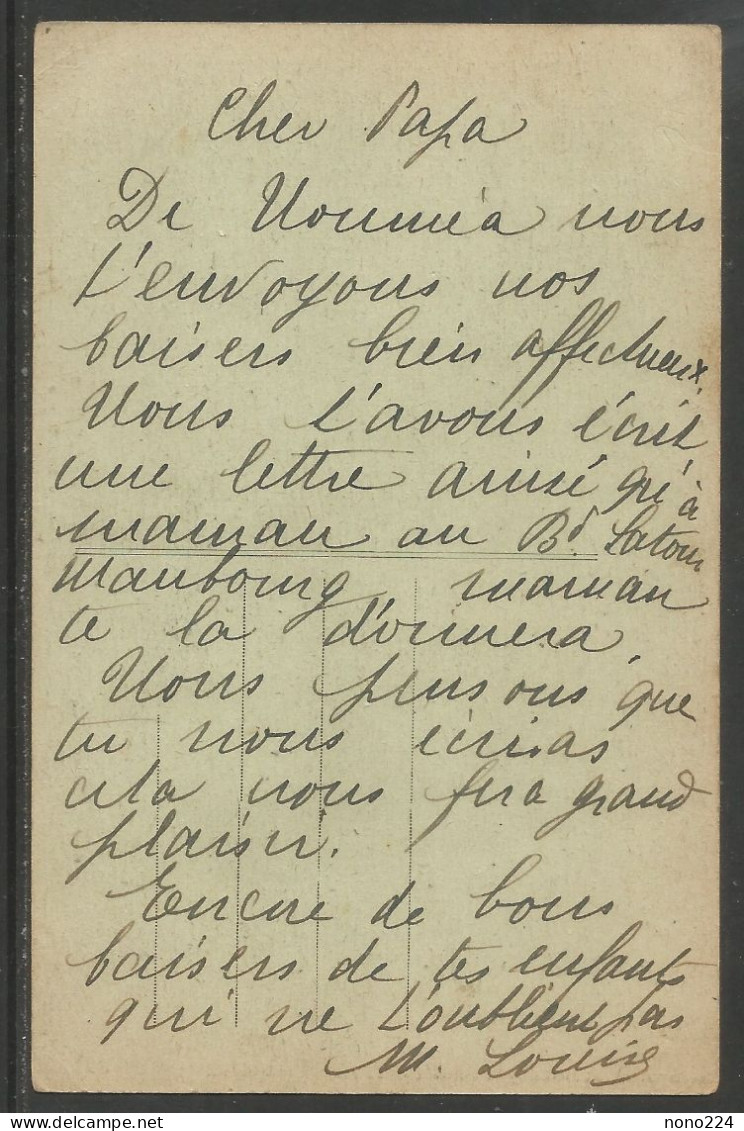 Cher Papa
De Nouméa nous
t'envoyons nos
baisers bien affectueux.
Nous t'avons écrit
une lettre ainsi qu'à
maman au Bd Latour
Maubourg, maman
te la donnera.
Nous pensons que
tu nous écriras
cela nous fera grand
plaisir.
Encore de bons
baisers de tes enfants
qui ne t'oublient pas
M. Louise
nono224